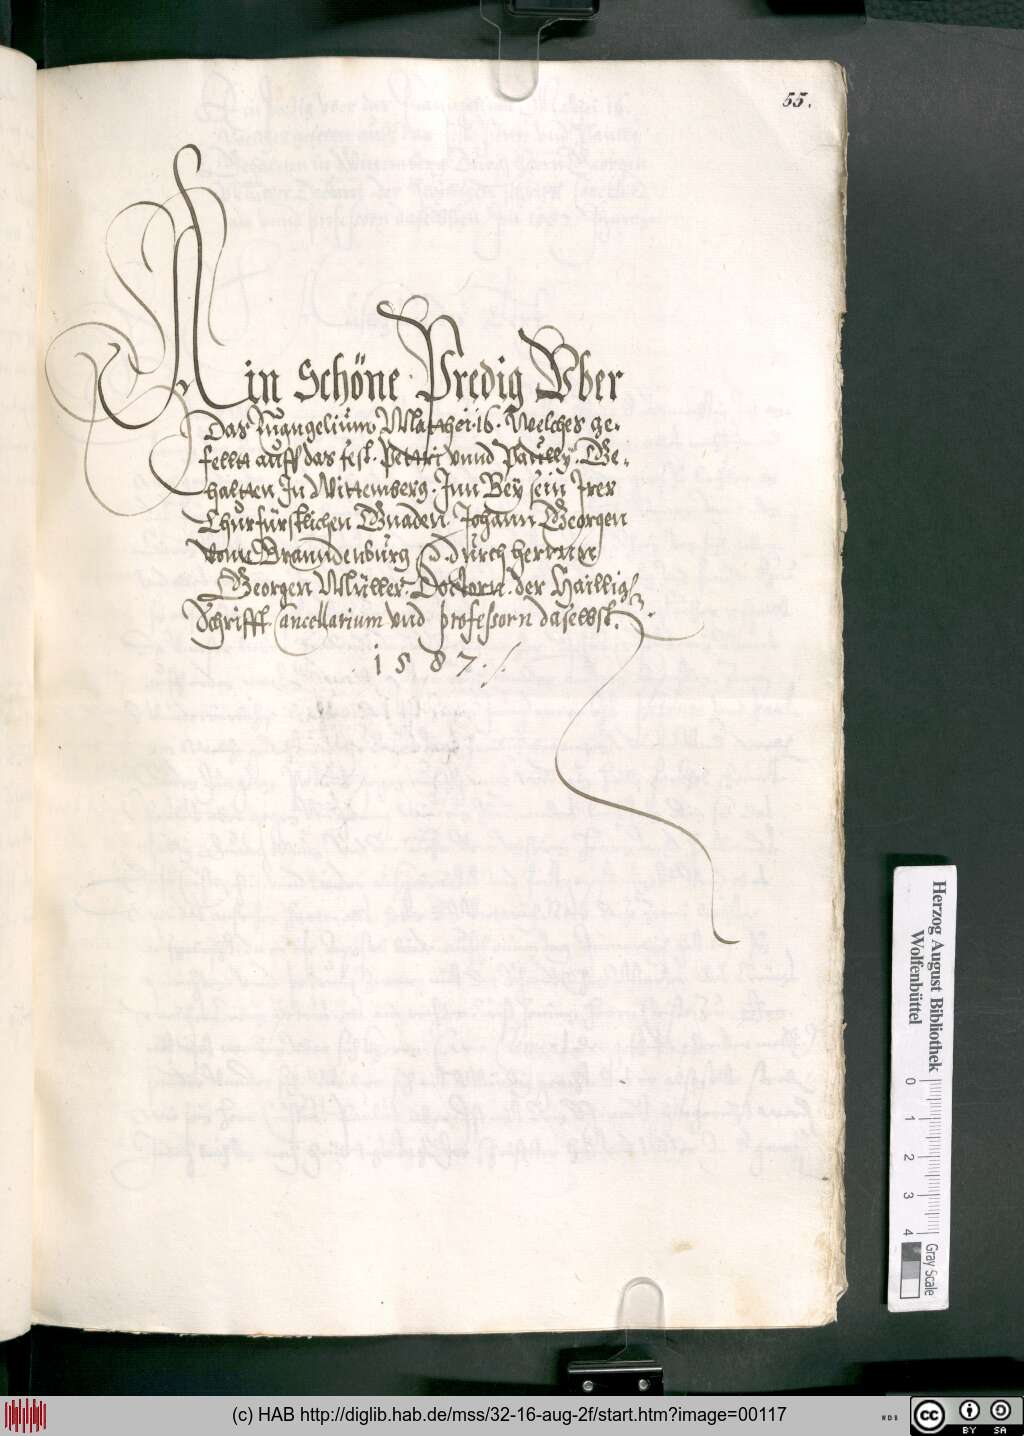 55.
Ain Schöne Predig Vber
Das Euangelium Matthei. 16. Welches ge-
fellt auff das fest. Pettri vnnd Paully. Ge-
haltten In Wittemberg. Inn Bey sein Irer
Churfürstlichen Gnaden Johann Georgen
vonn Branndenburg / durch herrnn
Georgen Müller. Doctorn. der Hailligen
Schrifft Cancellarium vnd professorn daselbst.
1587./.
Herzog August Bibliothek
Wolfenbüttel
0 1 2 3 4
Gray Scale
(c) HAB http://diglib.hab.de/mss/32-16-aug-2f/start.htm?image=00117
WDB
cc
BY SA